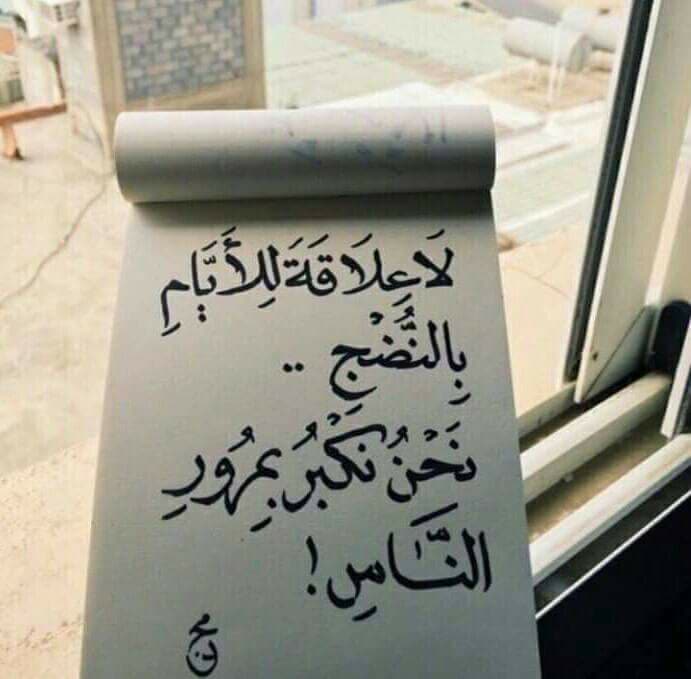 لَا عِلَاقَةَ لِلأَيَّامِ
بِالنُّضْجِ ..
نَحْنُ نَكْبَرُ بِمُرُورِ
النَّاسِ !